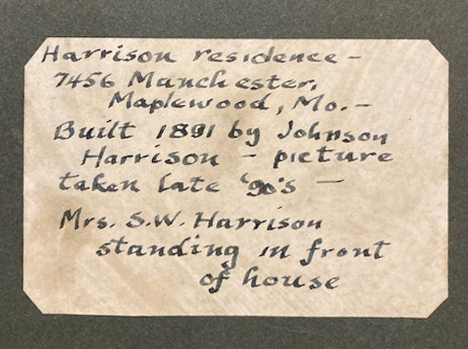 Harrison residence –
7456 Manchester,
Maplewood, Mo. –
Built 1891 by Johnson
Harrison – picture
taken late '90's –
Mrs. S.W. Harrison
standing in front
of house